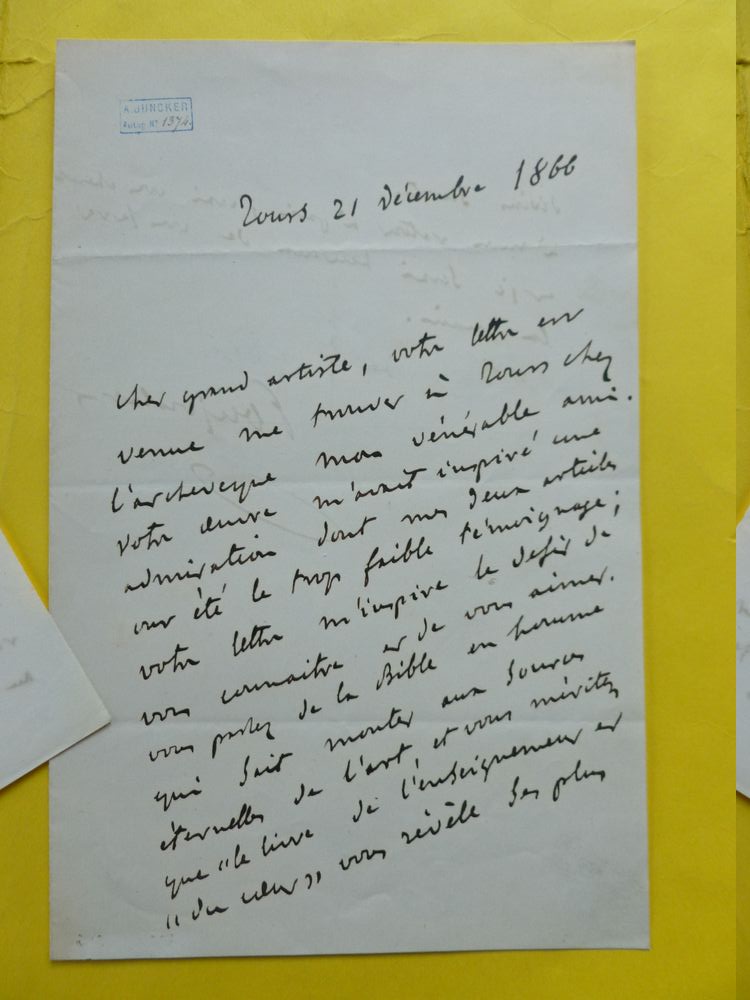 A. JUNCKER
N° 1374
Tours 21 décembre 1866
cher grand artiste, votre lettre est
venue me trouver à Tours chez
l'archeveque mon vénérable ami.
votre œuvre m'avait inspiré une
admiration dont mes deux articles
ont été le trop faible témoignage;
votre lettre m'inspire le desir de
vous connaitre et de vous aimer.
vous parlez de la Bible en homme
qui sait monter aux sources
éternelles de l'art, et vous méritez
que "le livre de l'enseignement et
"du cœur" vous révèle ses plus